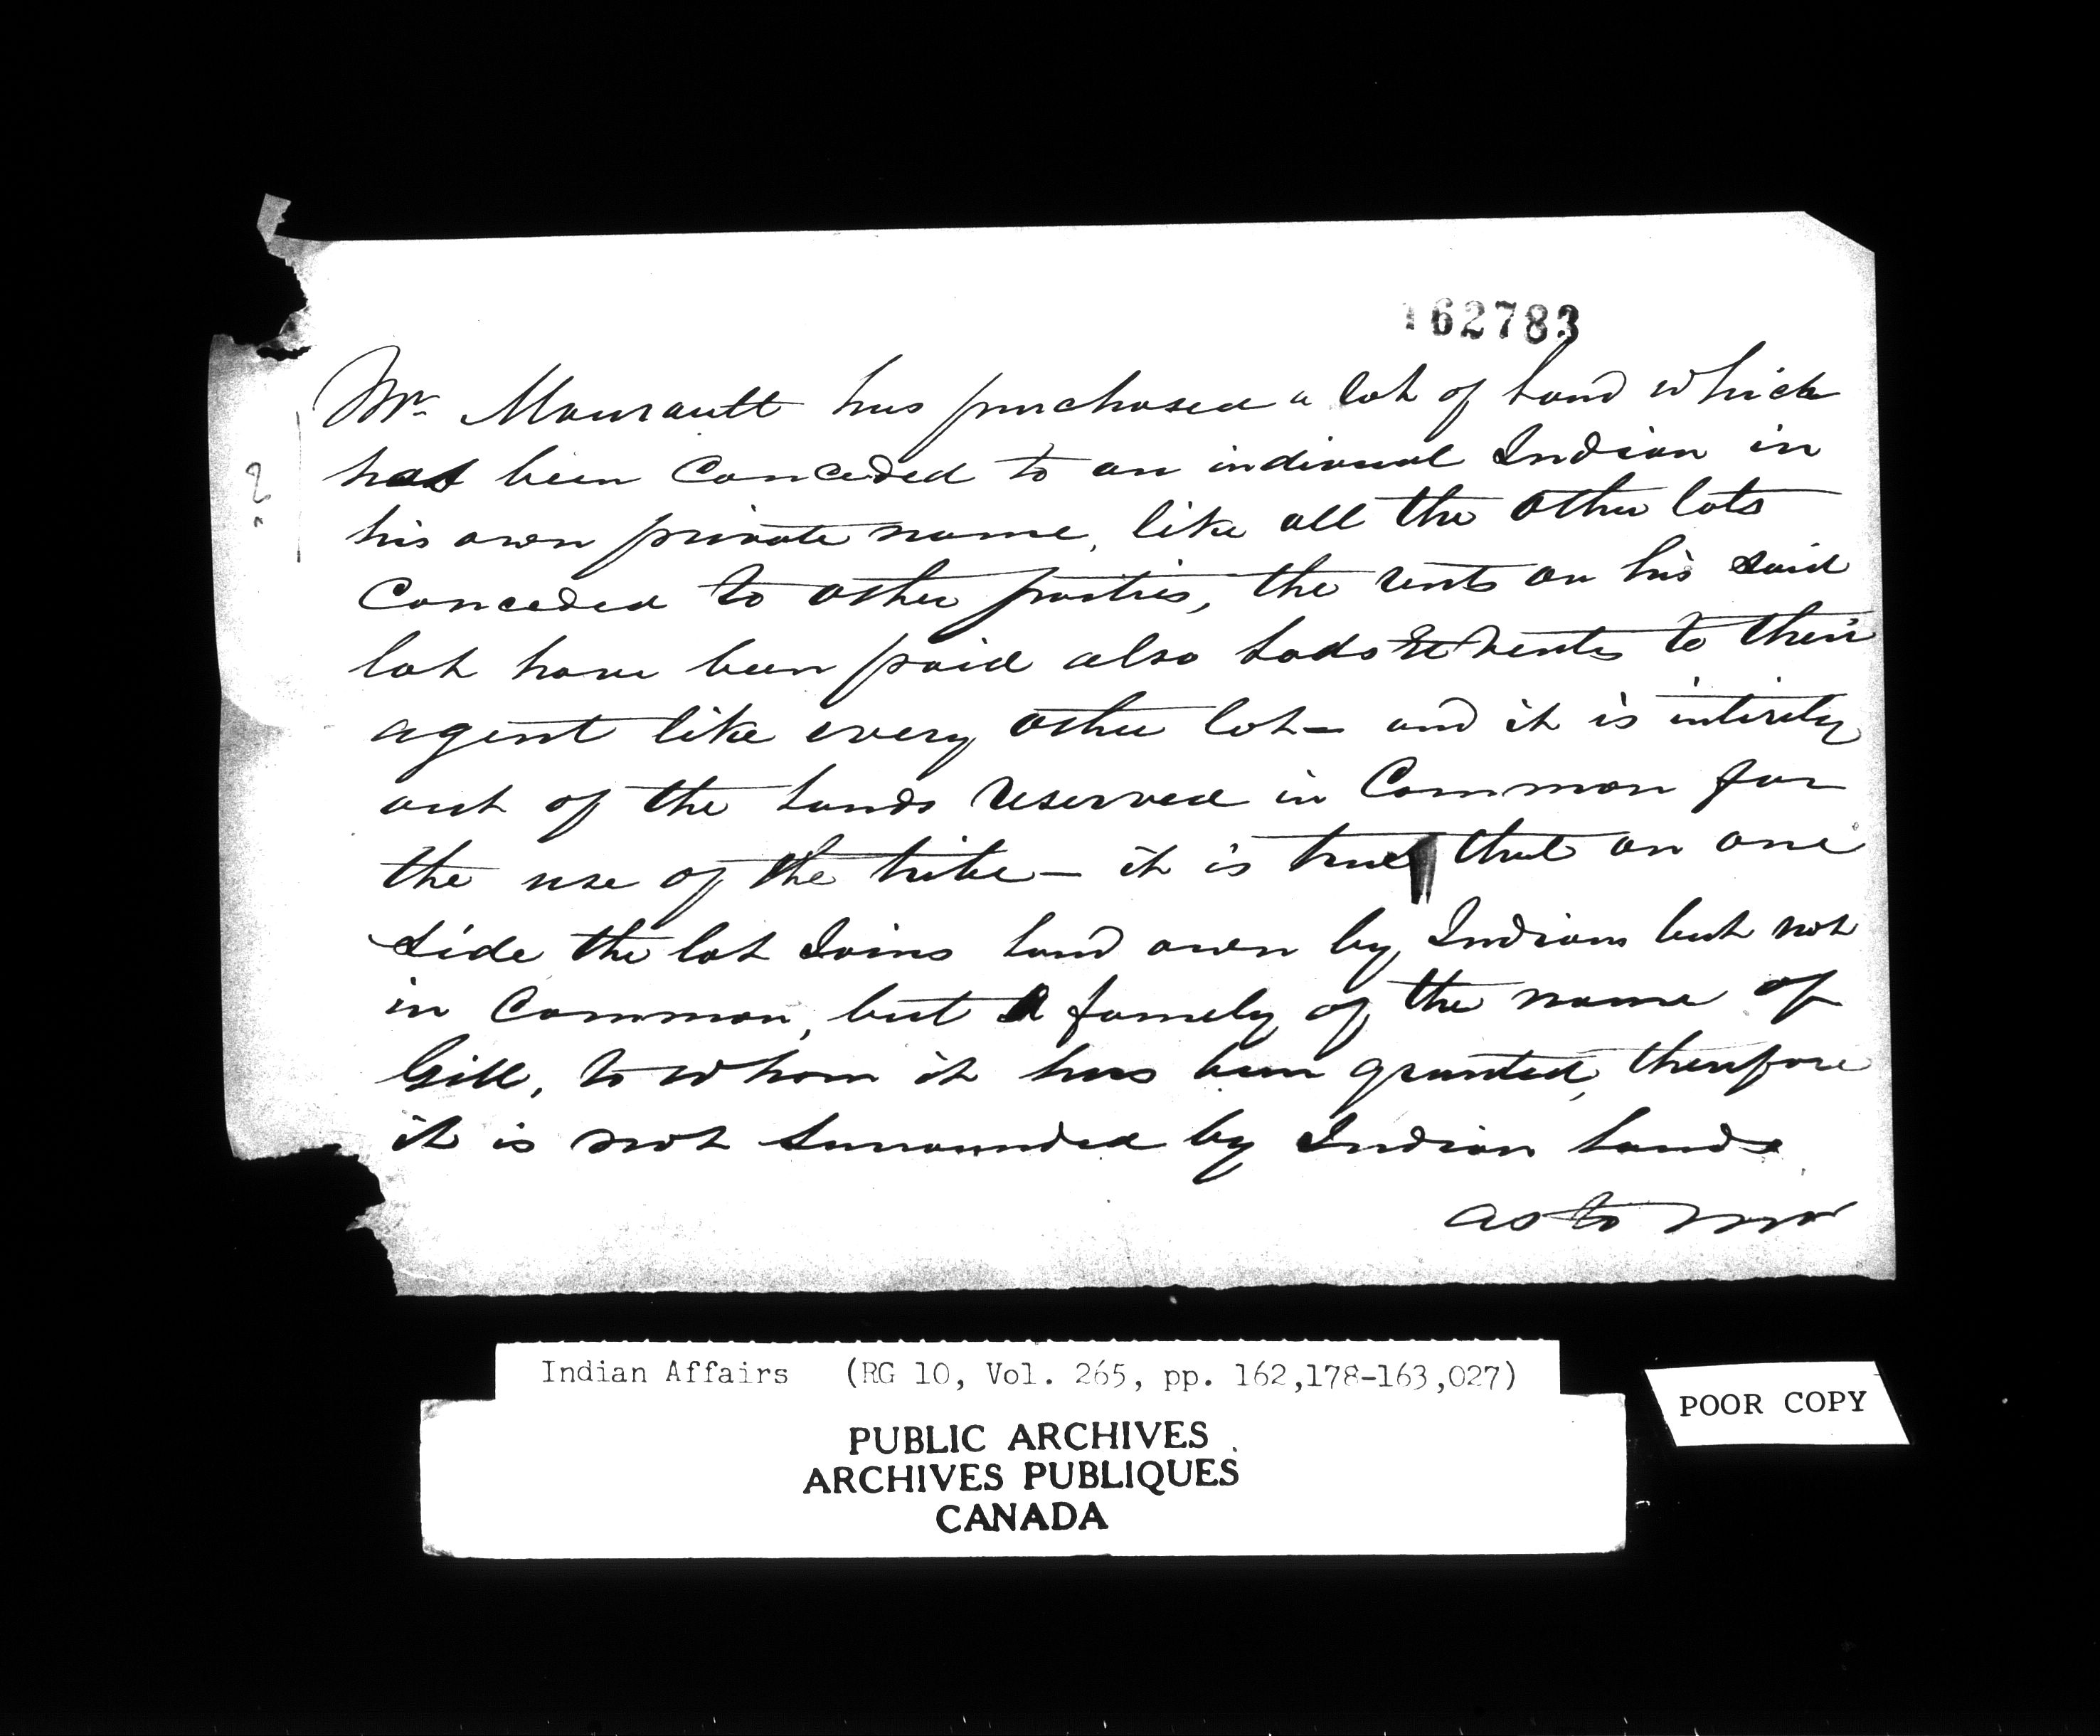 162783
Mr. Maurault has purchased a lot of land which
has been Conceded to an indivual Indian in
his own private name, like all the other lots
Conceded to other parties, the rents on his said
lot have been paid also Lods et Ventes to their
agent like every other lot - and it is intirely
out of the lands reserved in Common for
the use of the tribe - it is true that on one
side the lot Joins land own by Indians but not
in Common, but A family of the name of
Gill, to whom it has been granted, therefore
it is not surrounded by Indian lands
as to
?
Indian Affairs (RG 10, Vol. 265, pp. 162,178-163,027)
PUBLIC ARCHIVES
ARCHIVES PUBLIQUES
CANADA
POOR COPY